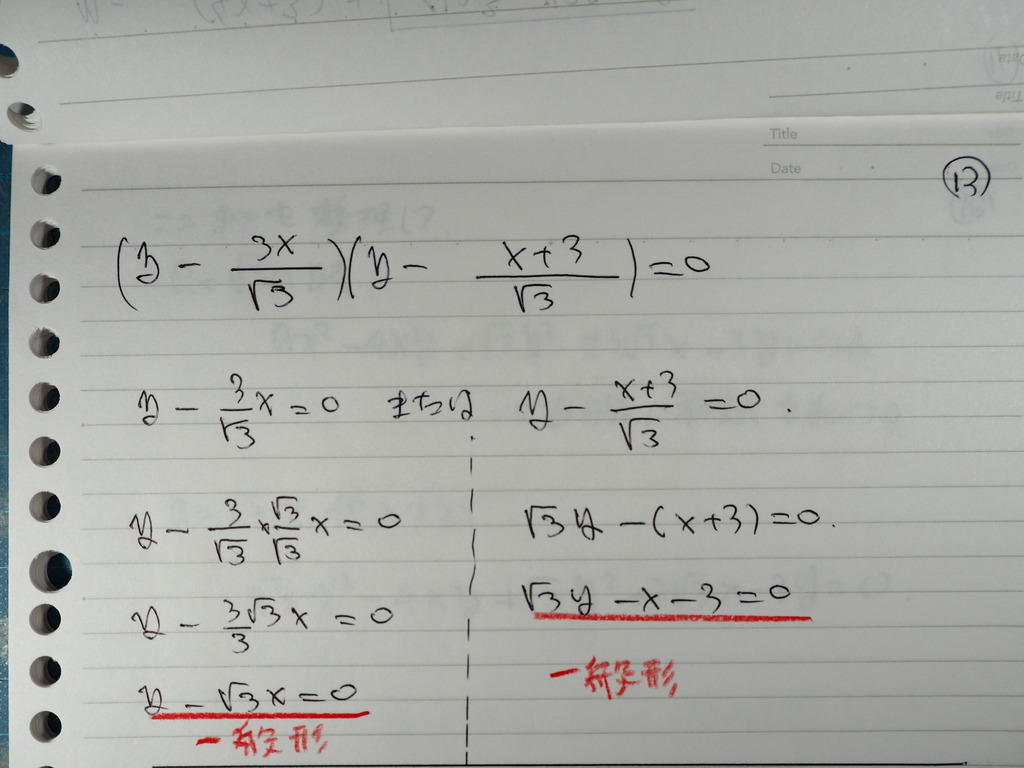 Title
Date
⑬
(y - 3x/√3)(y - (x+3)/√3) = 0
y - 3/√3 x = 0 または y - (x+3)/√3 = 0.
y - 3/√3 × √3/√3 x = 0
y - 3√3/3 x = 0
y - √3x = 0
一般形
√3y - (x+3) = 0.
√3y - x - 3 = 0
一般形